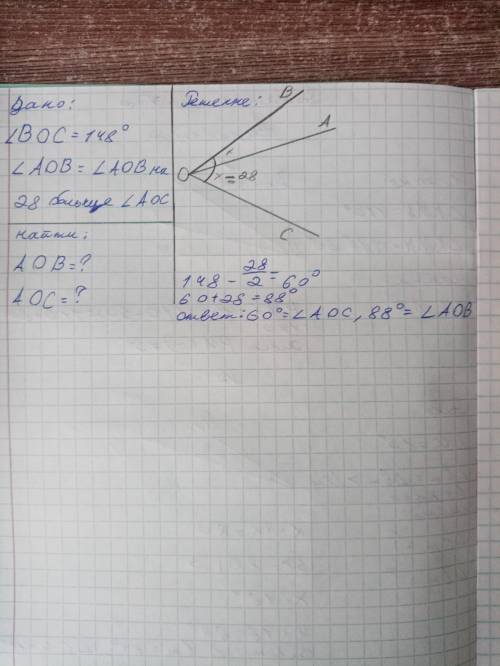 Дано:
∠BOC = 148°
∠AOB = ∠AOB на
28 больше ∠AOC
найти:
AOB = ?
AOC = ?
Решение:
B
A
O
x = 28
C
148 - 28/2 = 60°
60 + 28 = 88°
ответ: 60° = ∠AOC, 88° = ∠AOB